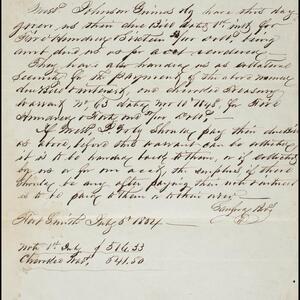 Messrs Johnson Grimes & Co have this day
given us their due Bill dated 1st inst for
Five Hundred & Sixteen 33/100 dolls being
amt due us for acct rendered.
They have also handed us as collateral
Security for the payment of the above named
due bill & interest, one Cherokee Treasury
warrant No. 63 dated Nov 10th 1848, for Five
Hundred & Forty one 50/100 dolls.
If Messrs J G & Co should pay their due bill
as above, before this warrant can be collected
it is to be handed back to them, or if collected
by us or for our acct, the surplus if there
should be any after paying their note & interest
is to be paid to them or order
Fort Smith July 5th
note 1st July $516.33
Cherokee War. 541.50